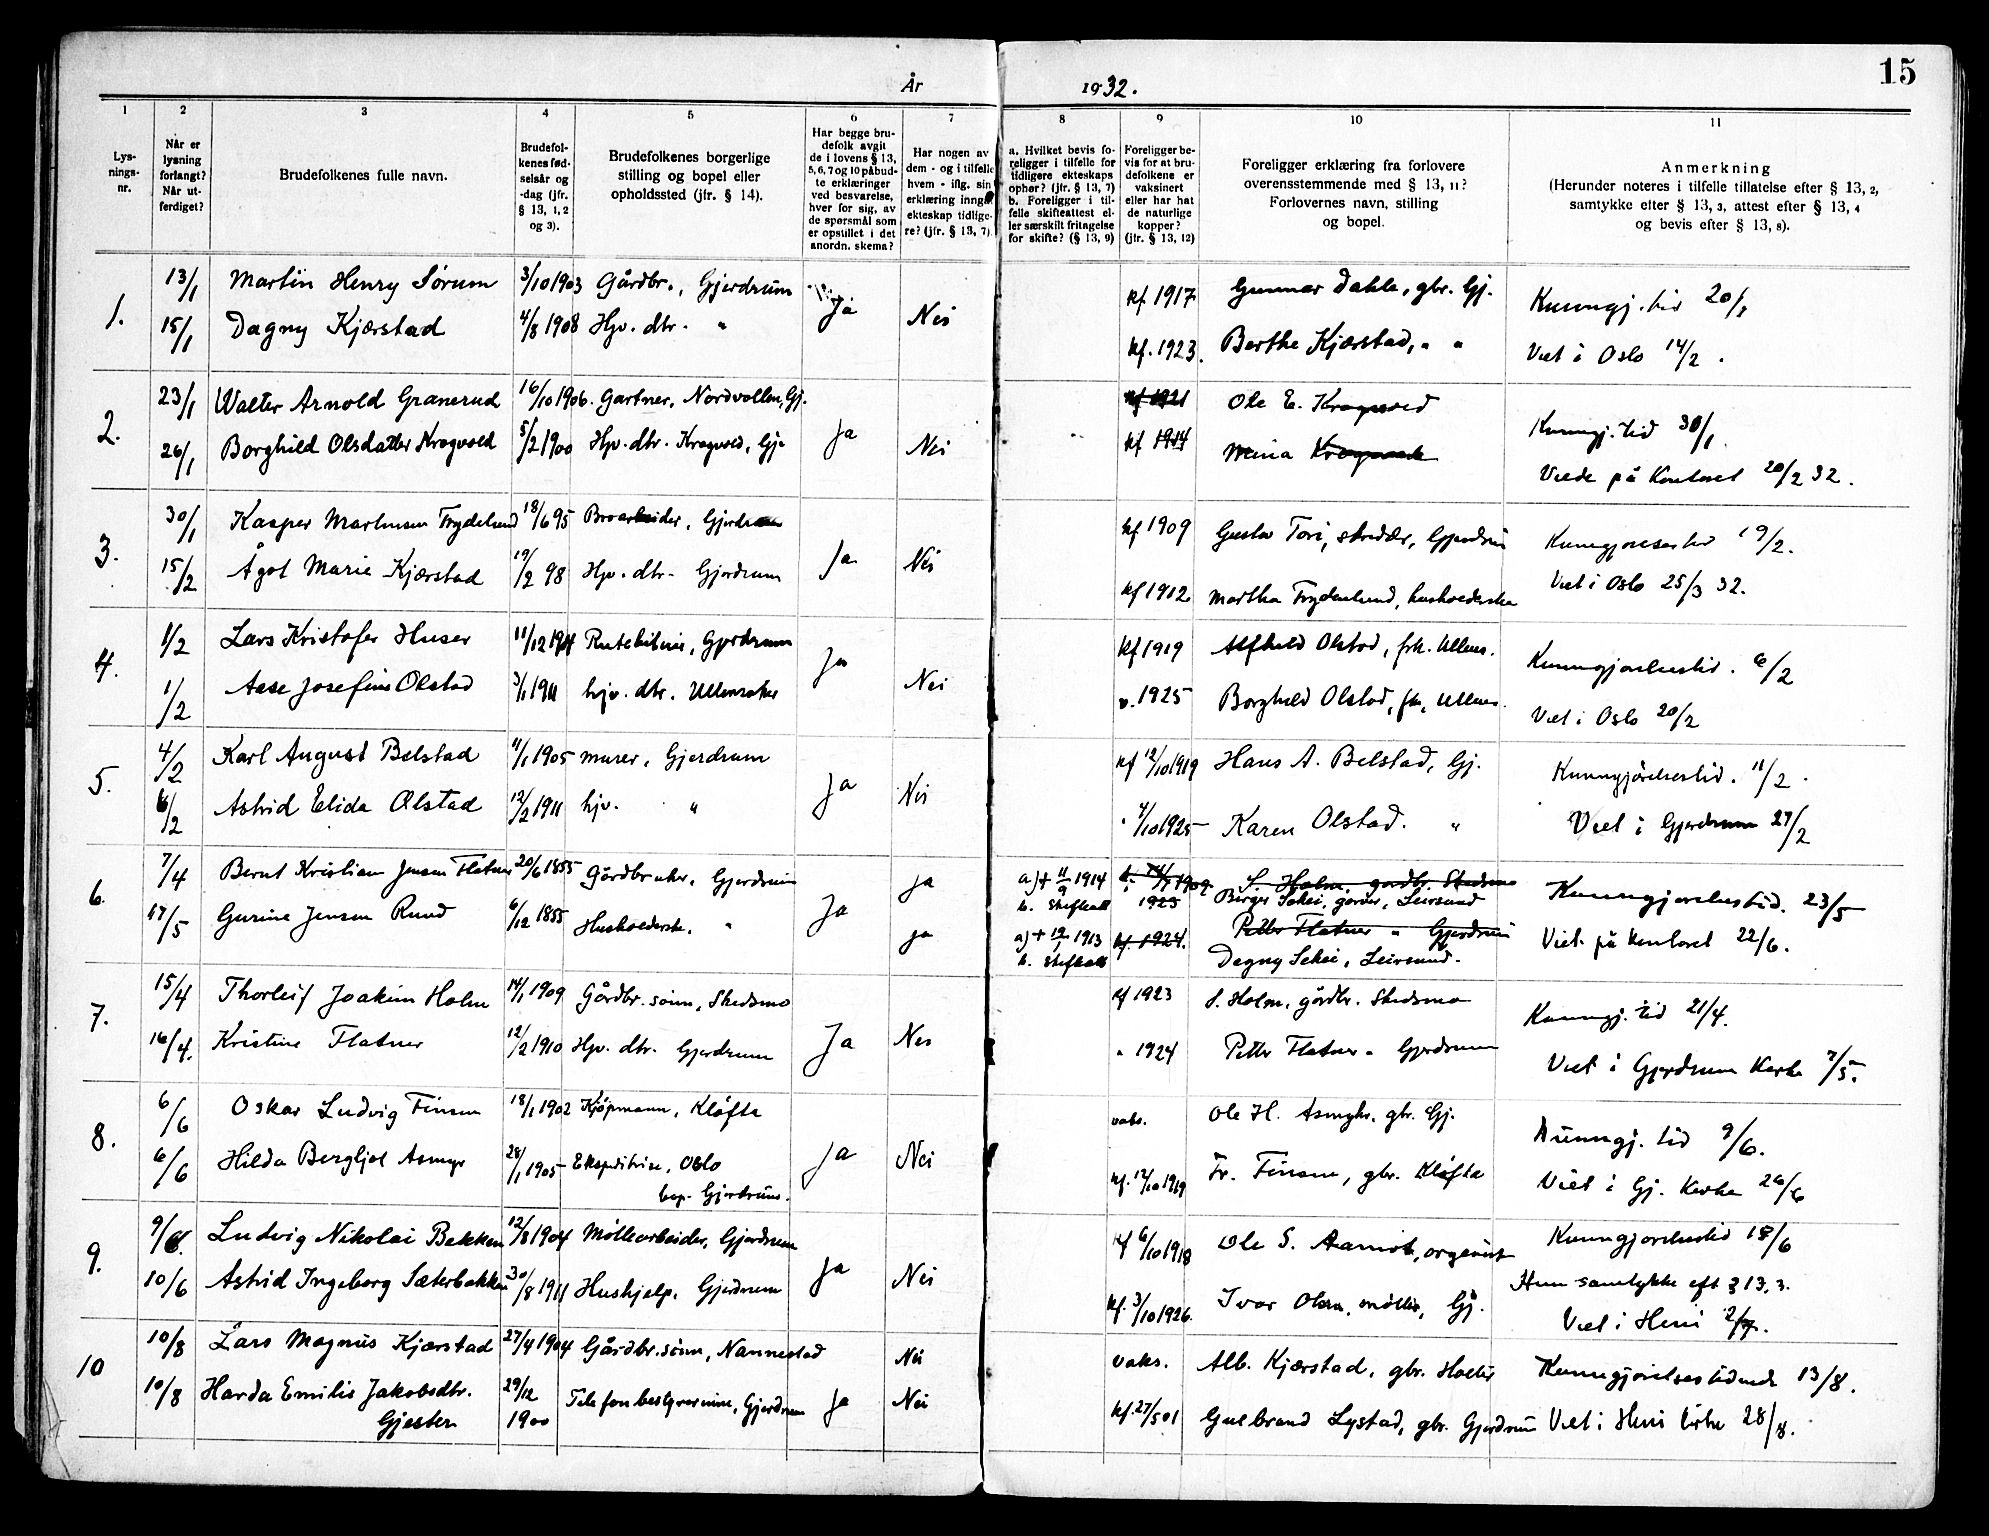 15
År 1932.
1
2
3
4
5
6
7
8
9
10
11
Lys-
nings-
nr.
Når er
lysning
forlangt?
Når ut-
ferdiget?
Brudefolkenes fulle navn.
Brudefol-
kenes fød-
selsår og
-dag (jfr.
§ 13, 1, 2
og 3).
Brudefolkenes borgerlige
stilling og bopel eller
opholdssted (jfr. § 14).
Har begge bru-
defolk avgit
de i lovens § 13,
5, 6, 7 og 10 påbud-
te erklæringer
ved besvarelse,
hver for sig, av
de spørsmål som
er opstillet i det
anordn. skema?
Har nogen av
dem - og i tilfelle
hvem - iflg. sin
erklæring inngått
ekteskap tidlige-
re? (jfr. § 13, 7).
a. Hvilket bevis fo-
religger i tilfelle for
tidligere ekteskaps
ophør? (jfr. § 13, 7)
b. Foreligger i til-
felle skifteattest el-
ler særskilt fritagelse
for skifte? (§ 13, 9)
Foreligger be-
vis for at bru-
defolkene er
vaksinert
eller har hat
de naturlige
kopper?
(jfr. § 13, 12)
Foreligger erklæring fra forlovere
overensstemmende med § 13, 11?
Forlovernes navn, stilling
og bopel.
Anmerkning
(Herunder noteres i tilfelle tillatelse efter § 13, 2,
samtykke efter § 13, 3, attest efter § 13, 4
og bevis efter § 13, 8).
1. 13/1 Martin Henry Sørum 3/10 1903 Gårdbr., Gjerdrum Ja Nei kf. 1917 Gunnar Dahle, gbr. Gj. Kunngj. tid 20/1
15/1 Dagny Kjærstad 4/8 1908 Hjv. dtr. " kf. 1923. Berthe Kjærstad, " " Viet i Oslo 14/2.
2. 23/1 Walter Arnold Granerud 16/10 1906. Gartner, Nordvollen, Gj. Ja Nei kf 1921 Ole E. Krogvold Kunngj. tid 30/1.
26/1 Borghild Olsdatter Krogvold 5/2 1900 Hjv. dtr. Krogvold, Gj. kf 1914 Mina Viede på Kontoret 20/2 32.
3. 30/1 Kasper Martinsen 18/6 95 Gjerdrum Ja Nei kf 1909 Gustav Tori, skredder, Gjerdrum Kunngjørelsestid 19/2.
15/2 Ågot Marie Kjærstad 19/2 98 Hjv. dtr. Gjerdrum kf 1912 Martha husholderske Viet i Oslo 25/3 32.
4. 1/2 Lars Kristofer Huser 11/12 Rutebileier, Gjerdrum Ja Nei kf 1919 Alfhild Olstad, frk. Ullens. Kunngjørelsestid. 6/2
1/2 Aase Josefine Olstad 3/1 1911 hjv. dtr. Ullensaker v. 1925 Borghild Olstad, frk, Ullens. Viet i Oslo 20/2
5. 4/2 Karl August Belstad 11/1 1905 murer, Gjerdrum Ja Nei kf 12/10 1919 Hans A. Belstad, Gj. Kunngjørelsestid. 11/2.
6/2 Astrid Elida Olstad 12/2 1911 hjv. " " 4/10 1925 Karen Olstad. " Viet i Gjerdrum 27/2
6. 7/4 Bernt Kristian Jensen Flatner 20/6 1855 Gårdbruker, Gjerdrum Ja ja a) + 11/9 1914 S. Holm, gårdbr. Skedsmo Kunngjørelsestid. 23/5
b. Skifteatt 1923 Birger Leirsund
17/5 Gurine Jensen Ruud 6/12 1855 Husholderske. " ja a) + 19/1 1913 kf. 1924. Petter Flatner " Gjerdrum Viet på kontoret 22/6.
b. Skifteatt Dagny Leirsund.
7. 15/4 Thorleif Joakim Holm 14/1 1909 Gårdbr. sønn, Skedsmo Ja Nei kf 1923 S. Holm, gårdbr. Skedsmo Kunngj. tid 21/4.
16/4. Kristine Flatner 12/2 1910 Hjv. dtr. Gjerdrum " 1924 Petter Flatner " Gjerdrum Viet i Gjerdrum Kirke 7/5.
8. 6/6 Oskar Ludvig Finsen 18/1 1902 Kjøpmann, Kløfta Ja Nei vaks. Ole H. Asmyhr. gbr. Gj. Kunngj. tid 9/6.
6/6 Hilda Bergljot Asmyr 28/1 1905 Ekspeditrise, Oslo kf. 12/10 1919 Fr. Finsen, gbr. Kløfta Viet i Gj. Kirke 26/6
bop. Gjerdrum.
9. 9/6. Ludvig Nikolai Bekken 12/8 1904 Møllearbeider, Gjerdrum Ja Nei kf 6/10 1918 Ole S. Aamot, organist Kunngjørelsestid 18/6
10/6 Astrid Ingeborg Sæterbakken 30/8 1911 Hushjelp. Gjerdrum kf. 3/10 1926. Ivar Olsen, møller, Gj. Hun samtykke eft § 13, 3.
Viet i Heni 2/7.
10 10/8 Lars Magnus Kjærstad 27/4 1904 Gårdbr. sønn, Nannestad Nei vaks. Alb. Kjærstad, gbr. Holter Kunngjørelsestidende 13/8.
10/8 Harda Emilie Jakobsdtr. 29/12 Telefonbestyrerinne, Gjerdrum Ja Nei kf. 27/5 01 Gulbrand Lystad, gbr. Gjerdrum Viet i Heni kirke 28/8.
Gjesten 1900